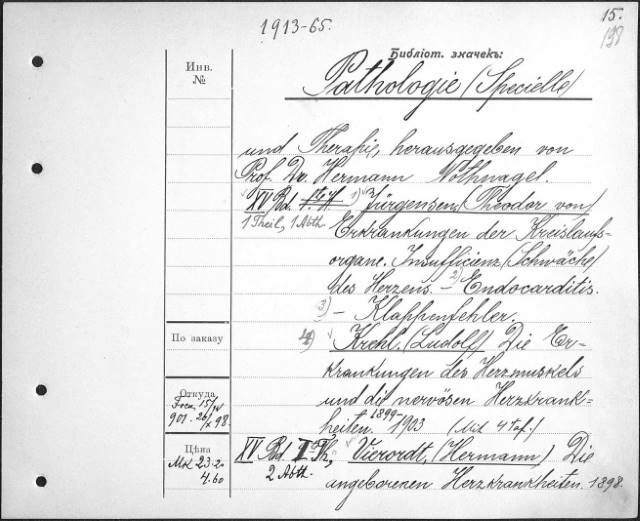 15.
198
1913-65.
Библіот. значекъ:
Инв.
№
Pathologie (Specielle)
und Therapie, herausgegeben von
Prof. Dr. Hermann Nothnagel.
XV Bd. 1) Jürgensen, (Theodor von)
1 Theil, 1 Abth.
Erkrankungen der Kreislaufs-
organe. Insufficienz (Schwäche)
des Herzens. – 2) Endocarditis.
3) – Klappenfehler.
По заказу
4) Krehl. (Ludolf) Die Er-
krankungen des Herzmuskels
Откуда
und die nervösen Herzkrank-
heiten. 1899- 1903 (Mit 4 Taf.)
Цѣна
XV Bd. I Th, Vierordt, (Hermann) Die
2 Abth.
4.60
angeborenen Herzkrankheiten. 1898.